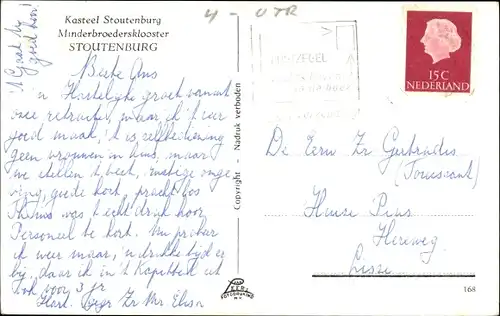 4 - UTR
Kasteel Stoutenburg
Minderbroedersklooster
STOUTENBURG
't Gaat hij
goed hoor!
Beste Ans
'n Hartelijke groet vanuit
onze retraite, waar ik 't zeer
goed maak, 't is zelfbediening
geen vrouwen in huis, maar
we stellen 't best, rustige omge
ving, goede kost, prachtbos
Thuis was 't echt druk hoor
Personeel te kort. Nu probeer
ik weer maar, 'n drukke tijd er
bij, daar ik in 't Kapittel zit
ook voor 3 jr
Hart. Zr
Copyright - Nadruk verboden
POSTZEGEL
15 C
NEDERLAND
De Eerw Zr Gertrudis
(Toussaint)
Huize Pius
Hereweg
Lisse
LEERS
FOTODRUKKING
168